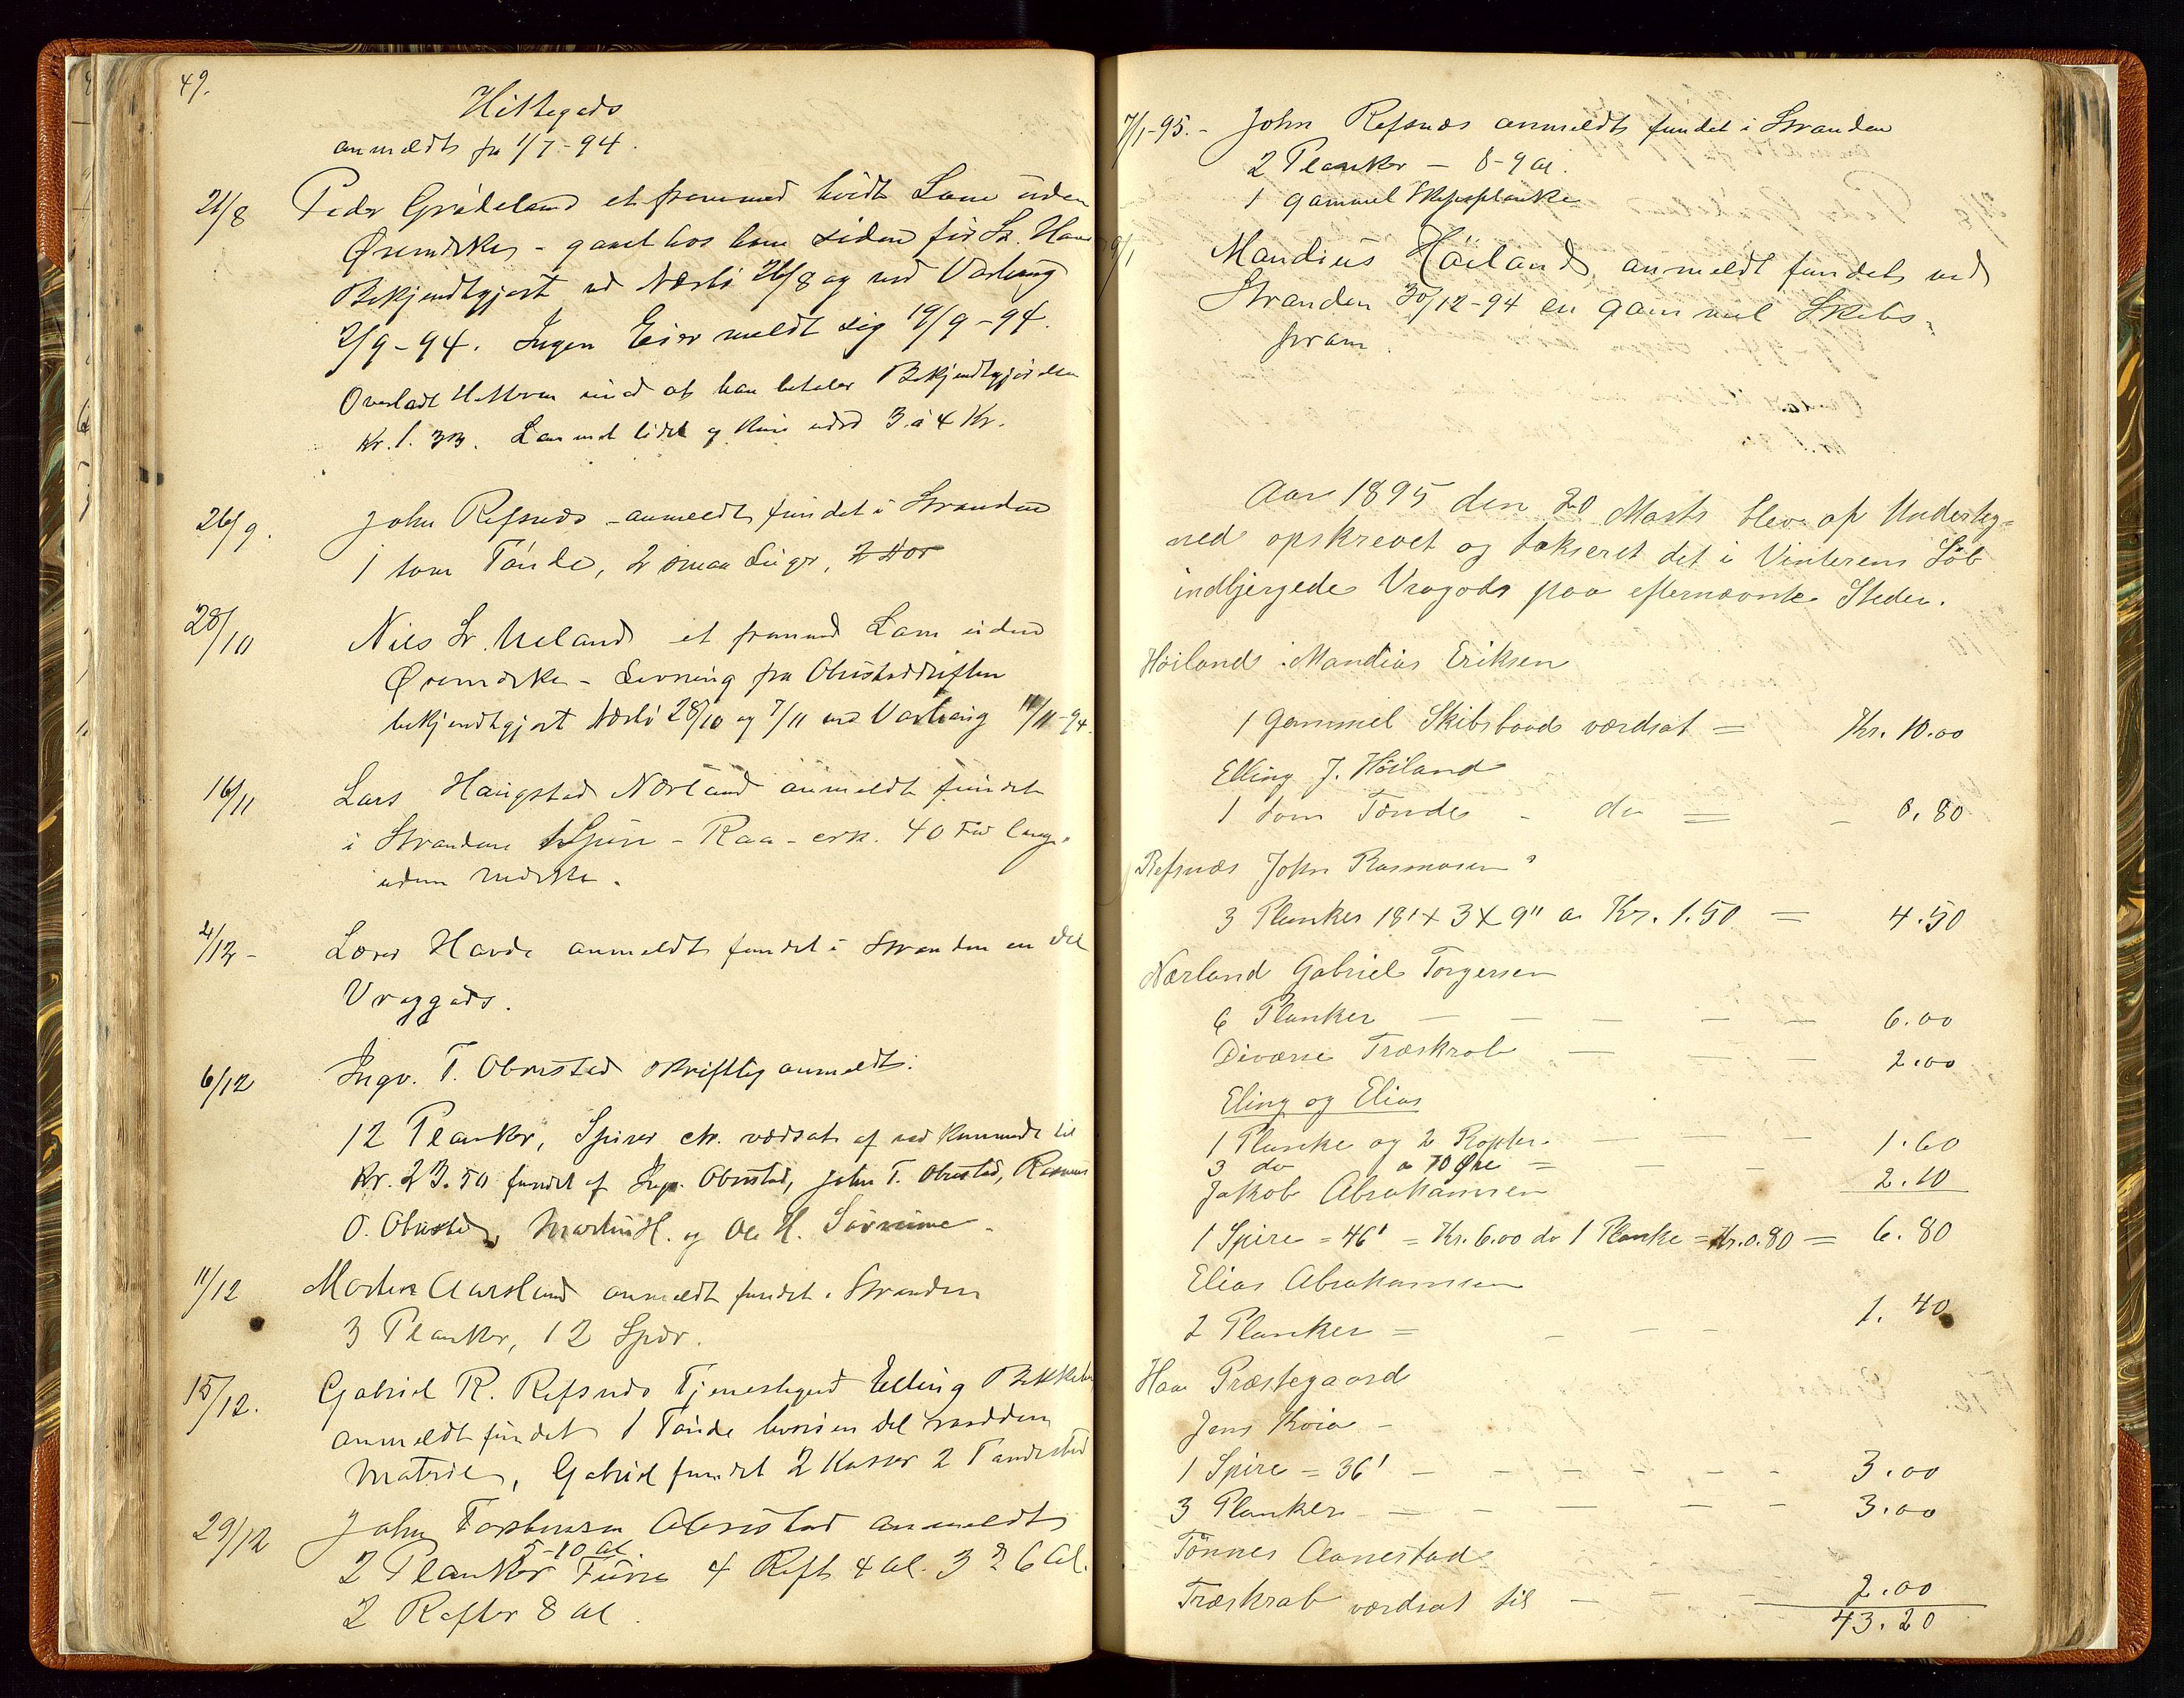 49.
Hittegods
anmeldt fra 1/7-94.
21/8 Peder Grødeland et fremmed hvidt Lam uden
Øremærke - gaaet hos ham siden før St. Hans
Bekjendtgjort ved Nærbø 26/8 og ved Varhaug
2/9-94. Ingen Eier meldt sig 19/9-94.
Overladt Hitteren imod at han betaler Bekjendtgjørelsen
Kr. 1.33. Lammet lidet og kun værd 3 à 4 Kr.
26/9. John Refsnæs anmeldt fundet i Stranden
1 tom Tønde, 2 smaa Luger,
28/10 Nils Sr. Ueland et fremmed Lam uden
Øremærke - Levning fra Obrestaddriften
bekjendtgjort Nærbø 28/10 og 7/11 ved Varhaug 11/11-94.
16/11 Lars Haugstad Nærland anmeldt fundet
i Stranden 1 Spire - Raa - crk. 40 Fod lang.
uden Mærke.
4/12 - Lærer Haarde anmeldt fundet i Stranden en Del
Vraggods.
6/12 Ingv. T. Obrestad skriftlig anmeldt:
12 Planker, Spirer etc. værdsat af vedkommende til
Kr. 23.50 fundet af Ingv. Obrestad, John T. Obrestad, Rasmus
O. Obrestad, Martin H. og Ole H.
11/12 Morten Aarsland anmeldt fundet i Stranden
3 Planker, 12 Spær.
15/12. Gabriel R. Refsnæs Tjenestegut Elling
anmeldt fundet 1 Tønde hvori en Del raadden
Materie, Gabriel fundet 2 Kasser 2
29/12 John Torstensen Obrestad anmeldt
5-10 Al.
2 Planker Furu 4 Reft 4 Al. 3 à 6 Al.
2 Refter 8 Al.
7/1-95. - John Refsnæs anmeldt fundet i Stranden
2 Planker - 8-9 Al.
1 gammel Skibsplanke
9/1 Mandius Høiland, anmeldt fundet ved
Stranden 30/12-94 en gammel Skibs-
pram.
Aar 1895 den 20 Marts blev af Underteg-
ned opskrevet og takseret det i Vinterens Løb
indbjergede Vragods paa efternævnte Steder.
Høiland Mandius Eriksen
1 Gammel Skibsbaad værdsat = Kr. 10.00
Elling J. Høiland
1 tom Tønde - do = - 0.80
Refsnæs John Rasmusen
3 Planker 18' x 3 x 9" a Kr. 1.50 = 4.50
Nærland Gabriel Torgersen
6 Planker - - - - - 6.00
Diverse Træskrab - - - - 2.00
Eling og Elias
1 Planke og 2 Ropter - - - - 1.60
3 do a 70 Øre = - - - 2.10
Jakob Abrahamsen
1 Spire = 46' = Kr. 6.00 do 1 Planke = Kr. 0.80 = 6.80
Elias Abrahamsen
2 Planker = - - - 1.40
Haa Præstegaard
Jens Kvia -
1 Spire = 36' - - - - - - 3.00
3 Planker - - - - - - 3.00
Tønnes Aanestad
Træskrab værdsat til - - - 2.00
43.20